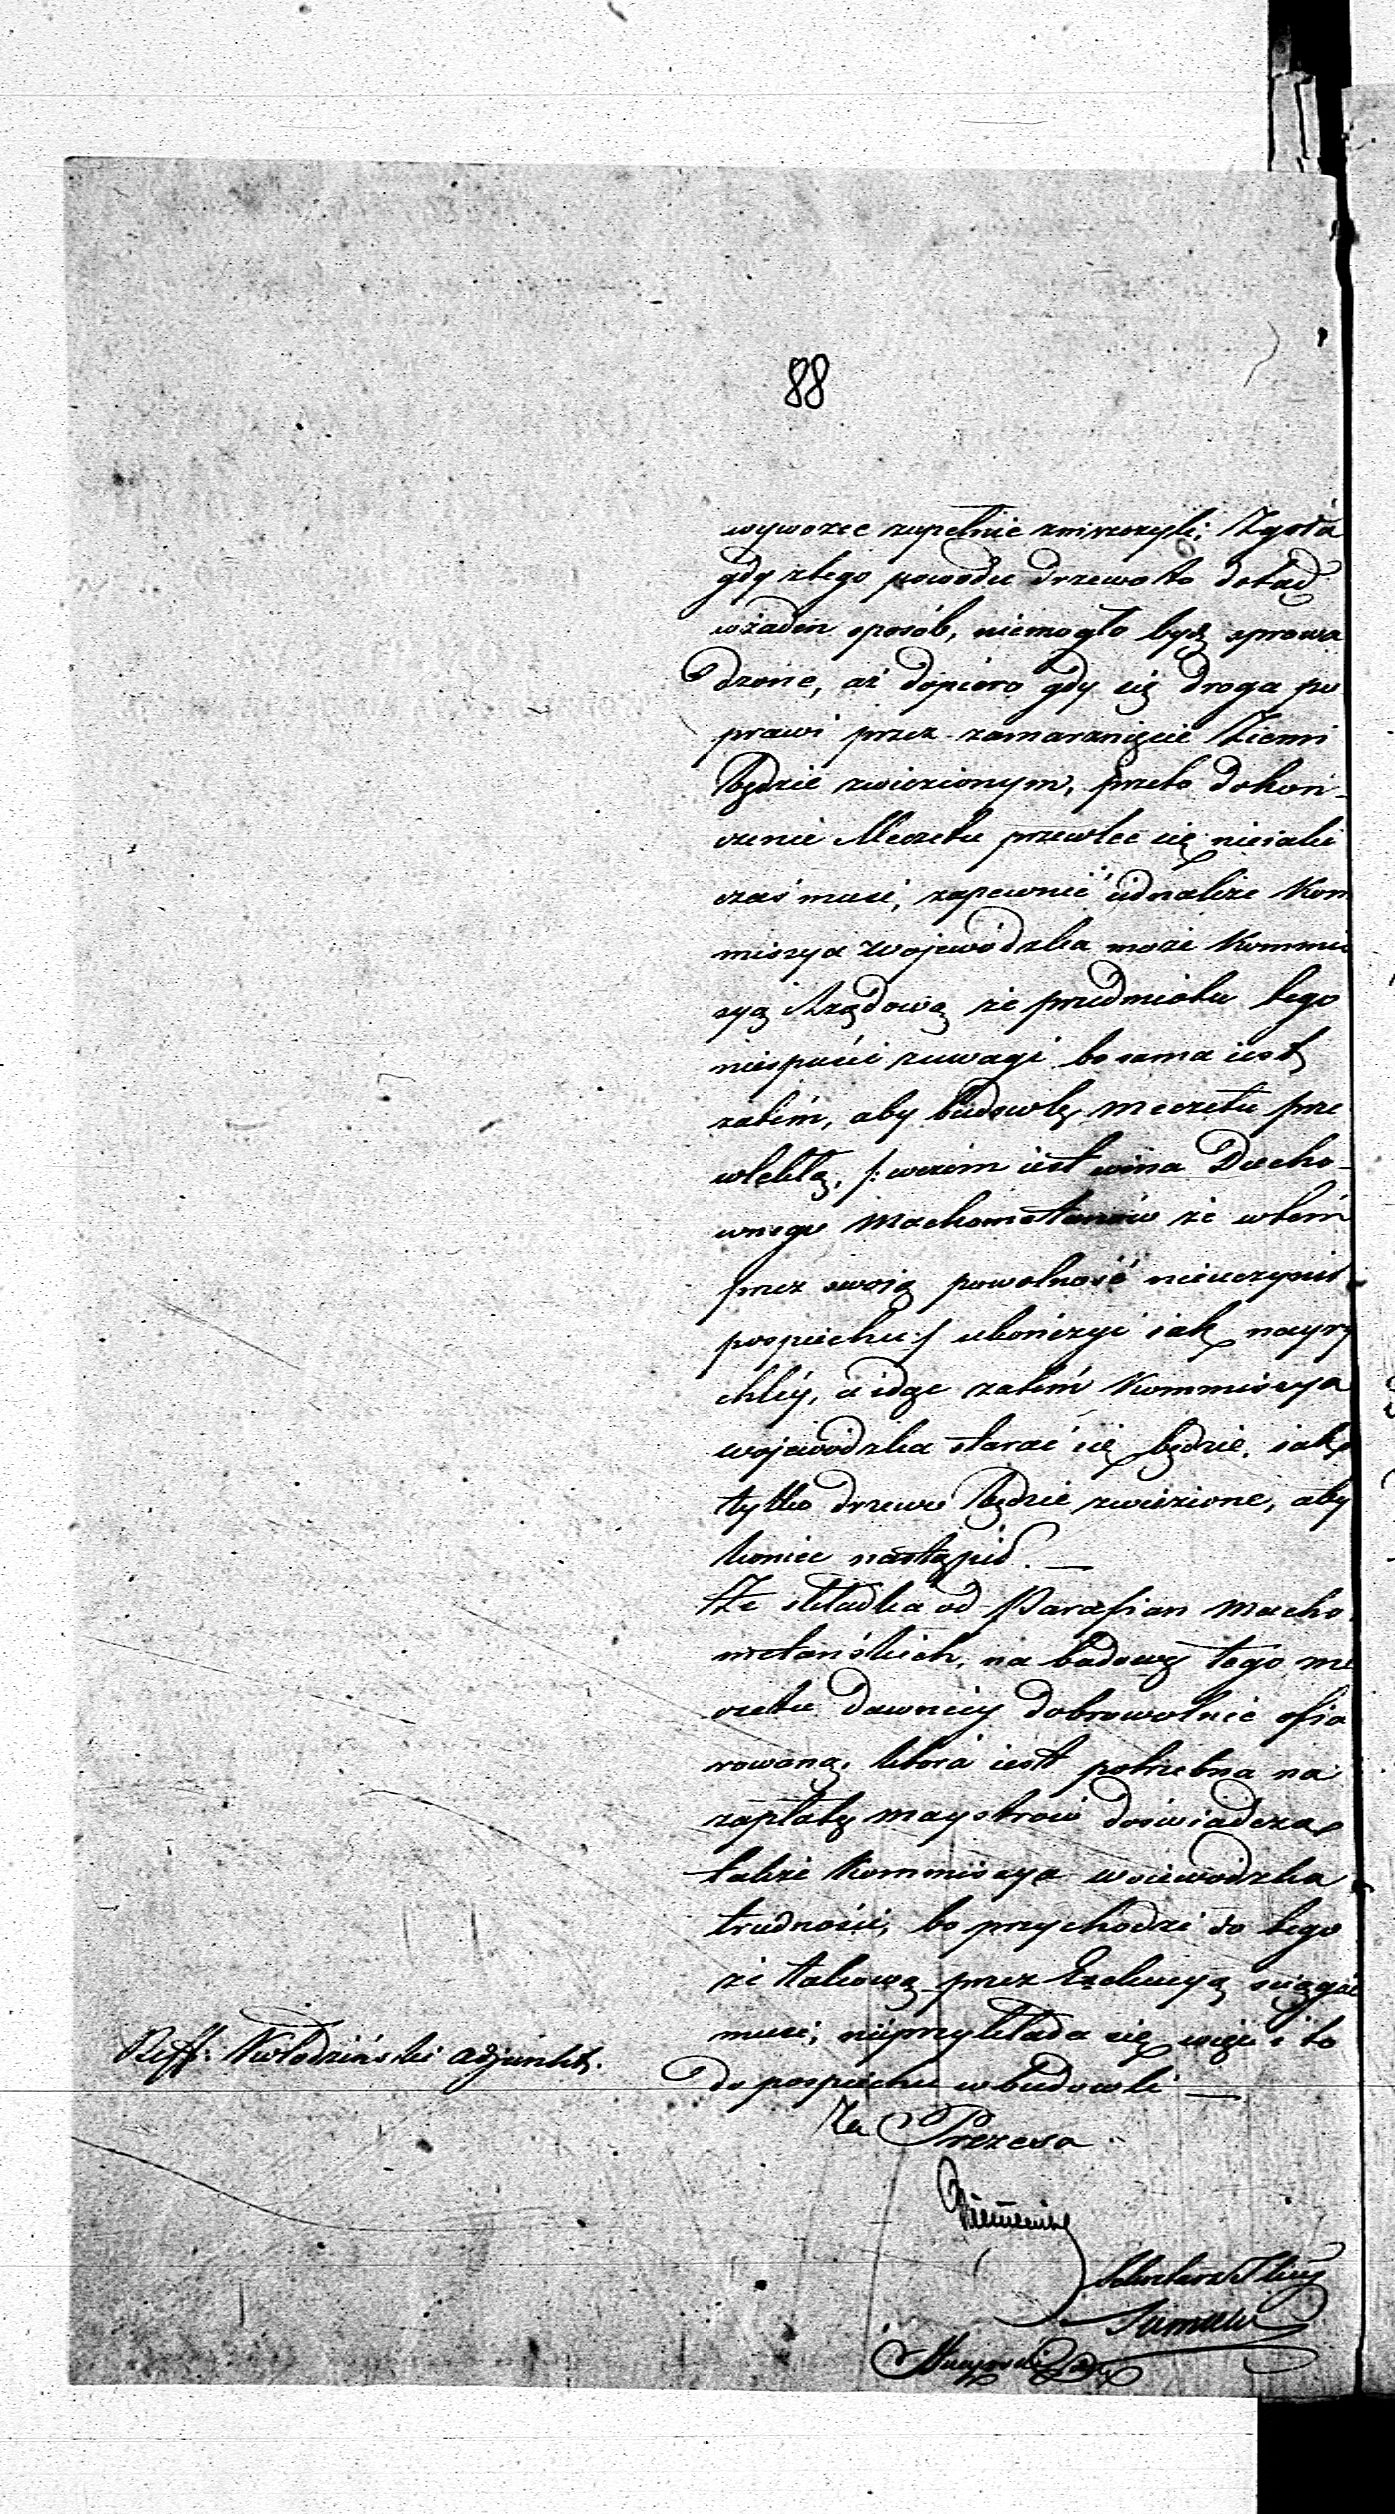 88
wyworzec zupełnie zniszczyli; Zgoła
gdy ztego powodu drzewo to dotąd
wżaden sposób, niemogło bydź sprowa
dzone, aż dopiero gdy się droga po
prawi przez zamarznięcie Ziemi
będzie zwiezionym, przeto dokoń-
czenie Meczetu przewlec się nieiaki
czas musi, zapewnić iednakże Kom
missya Wojewódzka może Kommis
syą Rządową że przedmiotu tego
niespuści zuwagi bo sama iest
zatém, aby budowlę meczetu prze
wlekłą, /: wczém iest wina Ducho-
wnego Machometanów że wtém
przez swoią powolność nieuczynił
pospiechu :/ ukończyć iak nayry
chléy, a idąc zatém Kommissya
Wojewódzka starać się będzie, iak
tylko drzewo będzie zwiezione, aby
koniec nastąpił. —
Że składka od Parafian Macho
metańskich, na budowę tego me
czetu dawniey dobrowolnie ofia
rowana, która iest potrzebna na
zapłatę maystrów doświadcza
także Kommissya Woiewódzka
trudności, bo przychodzi do tego
że takową przez Exekucyą sciągać
musi; nieprzykłada się więc i to
do pospiechu wbudowli —
Reff: Kłodziński adjunkt.
Za Prezesa
Sekretarz Jlny